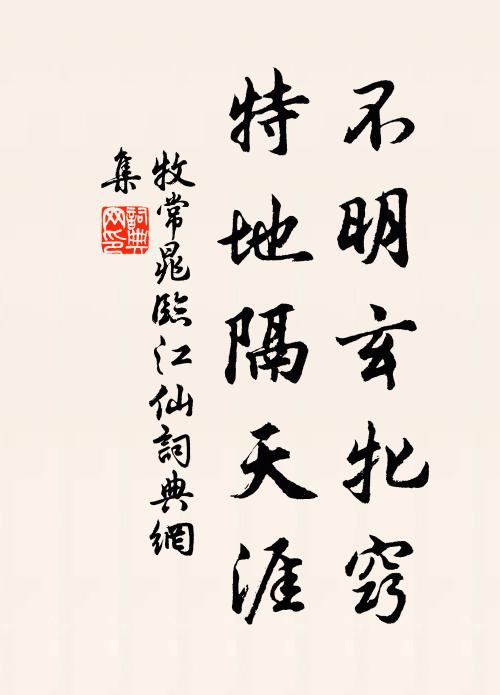 不明玄牝窍
特地隔天涯
牧常晁臨江仙詞典網
集
詞典網印